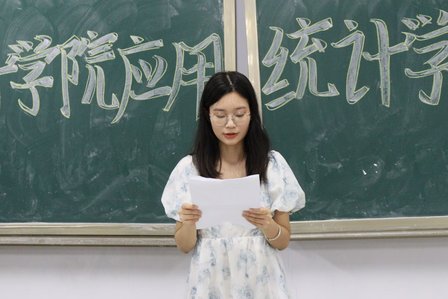 学院应用统计学